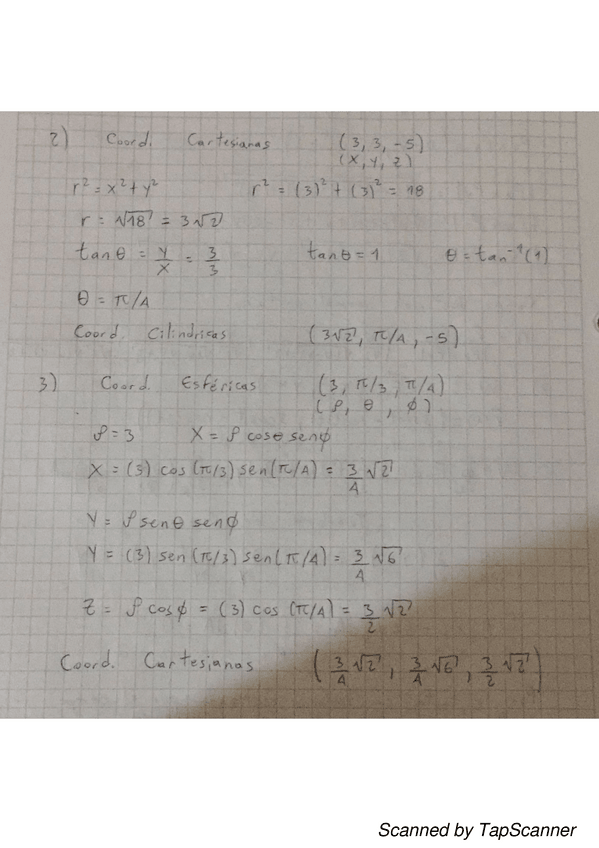 2) Coord. Cartesianas (3, 3, -5)
(x, y, z)
r² = x² + y² r² = (3)² + (3)² = 18
r = √18 = 3√2
tan θ = y/x = 3/3 tan θ = 1 θ = tan⁻¹(1)
θ = π/4
Coord. Cilindricas (3√2, π/4, -5)
3) Coord. Esféricas (3, π/3, π/4)
(ρ, θ, φ)
ρ = 3 X = ρ cosθ senφ
X = (3) cos (π/3) sen(π/4) = 3/4 √2
Y = ρ senθ senφ
Y = (3) sen (π/3) sen(π/4) = 3/4 √6
Z = ρ cosφ = (3) cos (π/4) = 3/2 √2
Coord. Cartesianas (3/4 √2, 3/4 √6, 3/2 √2)
Scanned by TapScanner